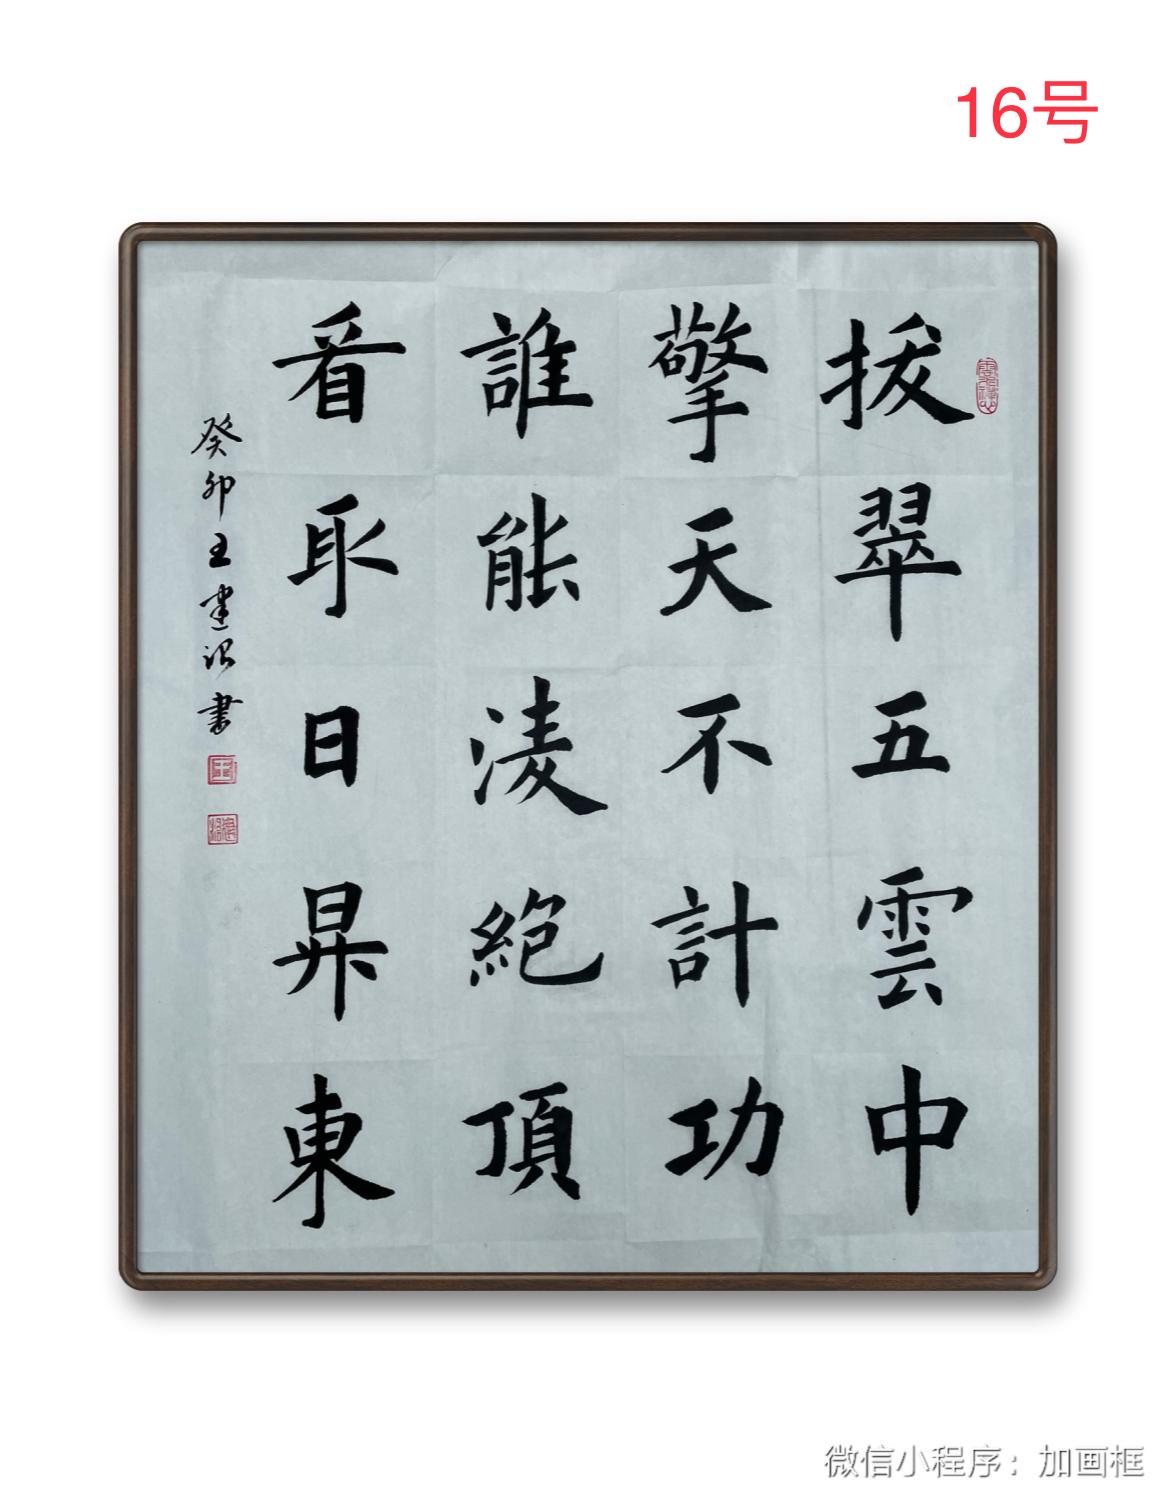 16号
拔翠五雲中
擎天不計功
誰能淩絕頂
看取日昇東
癸卯王建
書
微信小程序：加画框